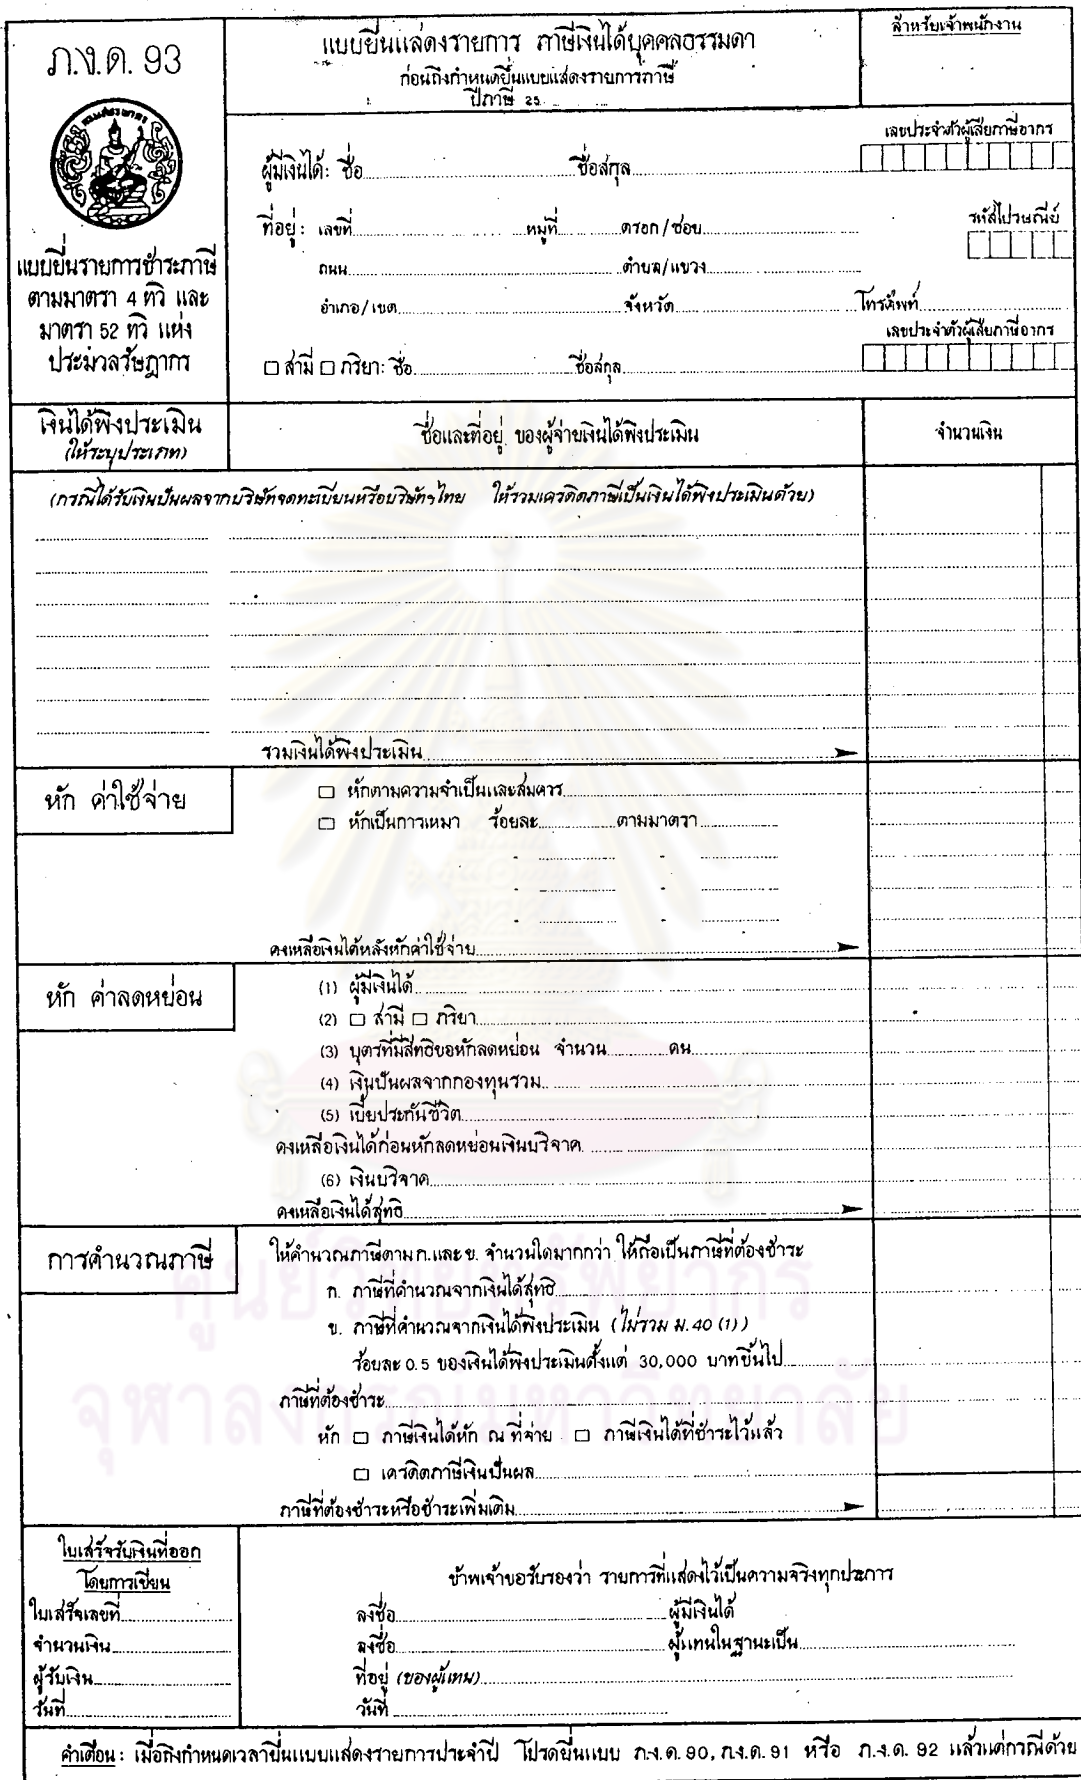 ภ.ง.ด. 93
แบบยื่นรายการชำระภาษี
ตามมาตรา 4 ทวิ และ
มาตรา 52 ทวิ แห่ง
ประมวลรัษฎากร
แบบยื่นแสดงรายการ ภาษีเงินได้บุคคลธรรมดา
ก่อนถึงกำหนดยื่นแบบแสดงรายการภาษี
ปีภาษี 25
สำหรับเจ้าพนักงาน
เลขประจำตัวผู้เสียภาษีอากร
ผู้มีเงินได้: ชื่อ ชื่อสกุล
รหัสไปรษณีย์
ที่อยู่: เลขที่ หมู่ที่ ตรอก/ซอย
ถนน ตำบล/แขวง
อำเภอ/เขต จังหวัด โทรศัพท์
เลขประจำตัวผู้เสียภาษีอากร
□ สามี □ ภริยา: ชื่อ ชื่อสกุล
เงินได้พึงประเมิน (ให้ระบุประเภท)
ชื่อและที่อยู่ ของผู้จ่ายเงินได้พึงประเมิน
จำนวนเงิน
(กรณีได้รับเงินปันผลจากบริษัทจดทะเบียนหรือบริษัทฯไทย ให้รวมเครดิตภาษีเป็นเงินได้พึงประเมินด้วย)
รวมเงินได้พึงประเมิน
หัก ค่าใช้จ่าย
□ หักตามความจำเป็นและสมควร
□ หักเป็นการเหมา ร้อยละ ตามมาตรา
คงเหลือเงินได้หลังหักค่าใช้จ่าย
หัก ค่าลดหย่อน
(1) ผู้มีเงินได้
(2) □ สามี □ ภริยา
(3) บุตรที่มีสิทธิขอหักลดหย่อน จำนวน คน
(4) เงินปันผลจากกองทุนรวม
(5) เบี้ยประกันชีวิต
คงเหลือเงินได้ก่อนหักลดหย่อนเงินบริจาค
(6) เงินบริจาค
คงเหลือเงินได้สุทธิ
การคำนวณภาษี
ให้คำนวณภาษีตาม ก. และ ข. จำนวนใดมากกว่า ให้ถือเป็นภาษีที่ต้องชำระ
ก. ภาษีที่คำนวณจากเงินได้สุทธิ
ข. ภาษีที่คำนวณจากเงินได้พึงประเมิน (ไม่รวม ม. 40 (1))
ร้อยละ 0.5 ของเงินได้พึงประเมินตั้งแต่ 30,000 บาทขึ้นไป
ภาษีที่ต้องชำระ
หัก □ ภาษีเงินได้หัก ณ ที่จ่าย □ ภาษีเงินได้ที่ชำระไว้แล้ว
□ เครดิตภาษีเงินปันผล
ภาษีที่ต้องชำระหรือชำระเพิ่มเติม
ศูนย์วิทยทรัพยากร
จุฬาลงกรณ์มหาวิทยาลัย
ใบเสร็จรับเงินที่ออก
โดยการเขียน
ใบเสร็จเลขที่
จำนวนเงิน
ผู้รับเงิน
วันที่
ข้าพเจ้าขอรับรองว่า รายการที่แสดงไว้เป็นความจริงทุกประการ
ลงชื่อ ผู้มีเงินได้
ลงชื่อ ผู้แทนในฐานะเป็น
ที่อยู่ (ของผู้แทน)
วันที่
คำเตือน: เมื่อถึงกำหนดเวลายื่นแบบแสดงรายการประจำปี โปรดยื่นแบบ ภ.ง.ด. 90, ภ.ง.ด. 91 หรือ ภ.ง.ด. 92 แล้วแต่กรณีด้วย